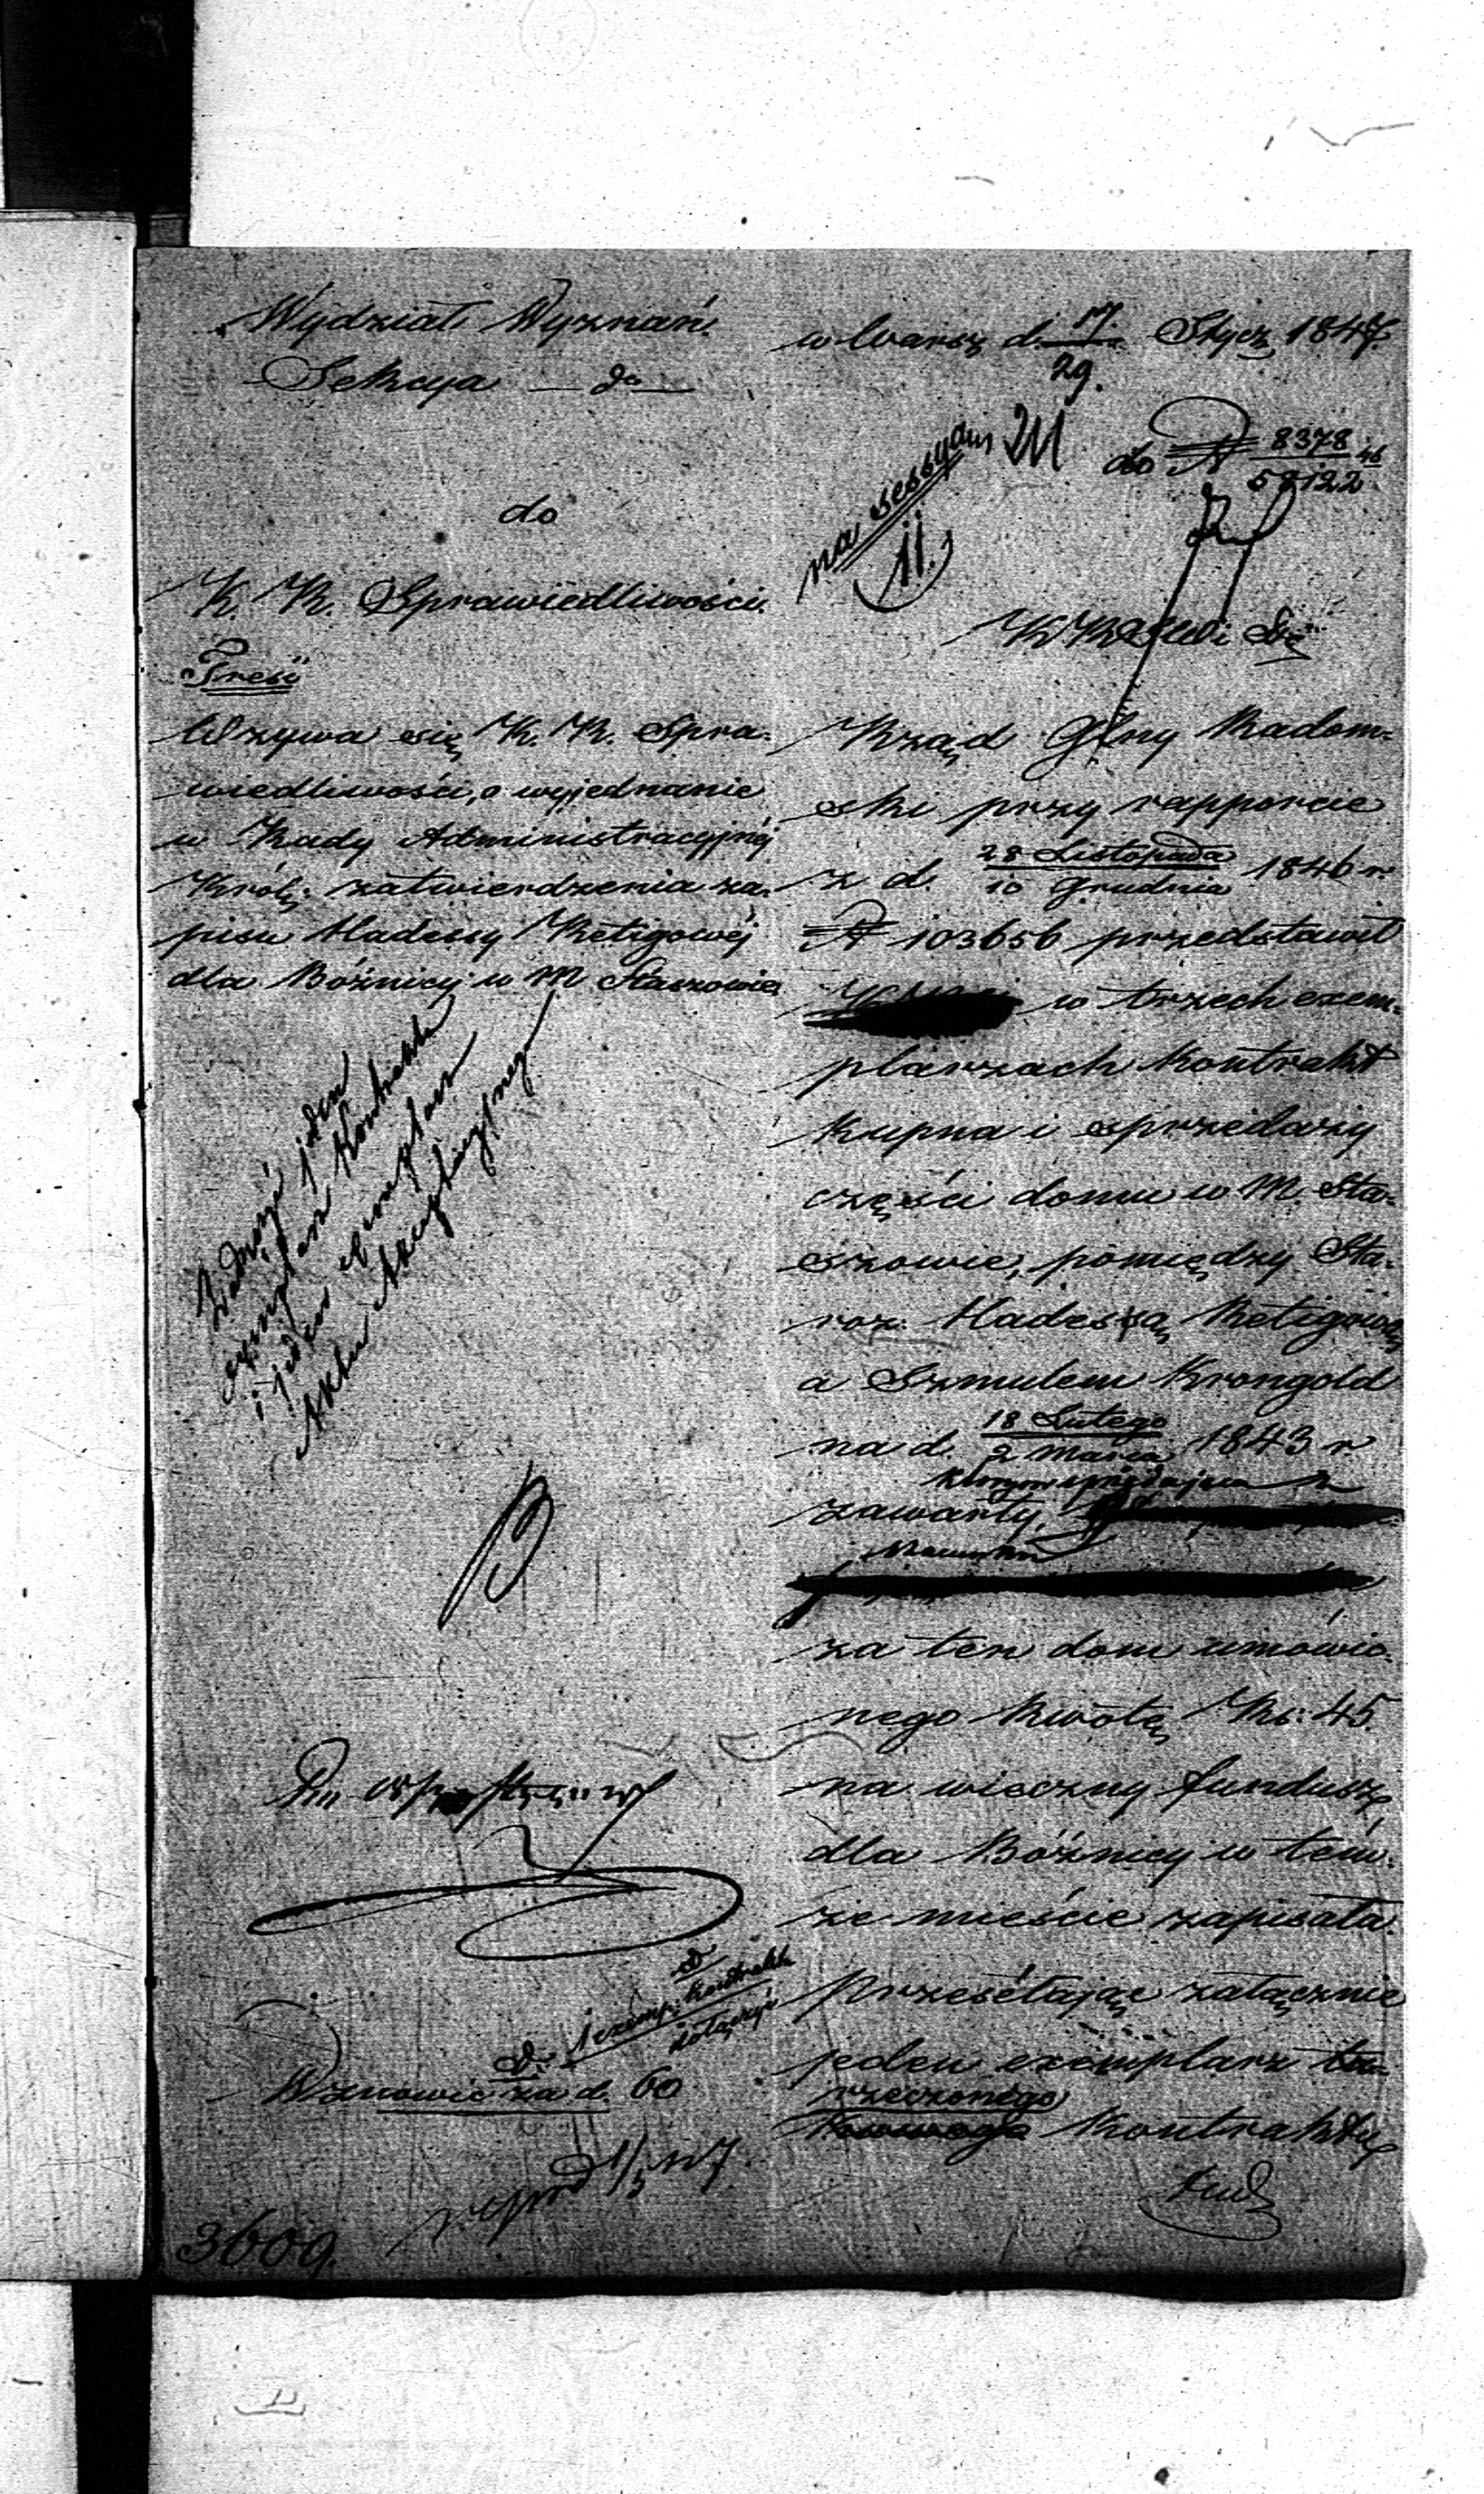 Wydział Wyznań
Sekcya — do —
do
K. R. Sprawiedliwości.
Treść
Wzywa się K. R. Spra-
wiedliwości, o wyjednanie
u Rady Administracyjnéj
Król: zatwierdzenia za-
pisu Hadessy Retigowéj
dla Bóżnicy w M Staszowie
Zadni jeden
exemplarz Kontraktu
i jeden exemplarz
Aktu
Wznowić za d. 60
1 exemp: Kontraktu
dołączyć
3609.
w Warsz d. 17/29. Stycz 1847.
na sessyą
11.
do N 8378/58122 46
Rząd Glny Radom-
ski przy rapporcie
z d. 28 Listopada/10 Grudnia 1846 r
N 103656 przedstawił
w trzech exem-
plarzach Kontrakt
Kupna i sprzedaży
części domu w M. Sta-
szowie, pomiędzy Sta-
roz. Hadessą Retigową
a Szmulem Krongold
na d. 18 Lutego/2 Marca 1843 r
którym sprzedająca
zawarty,
za ten dom umówio-
nego kwotę Rs: 45
na wieczny fundusz
dla Bóżnicy w tém-
że mieście zapisała.
Przesełając załącznie
jeden exemplarz
rzeczonego
Kontraktu